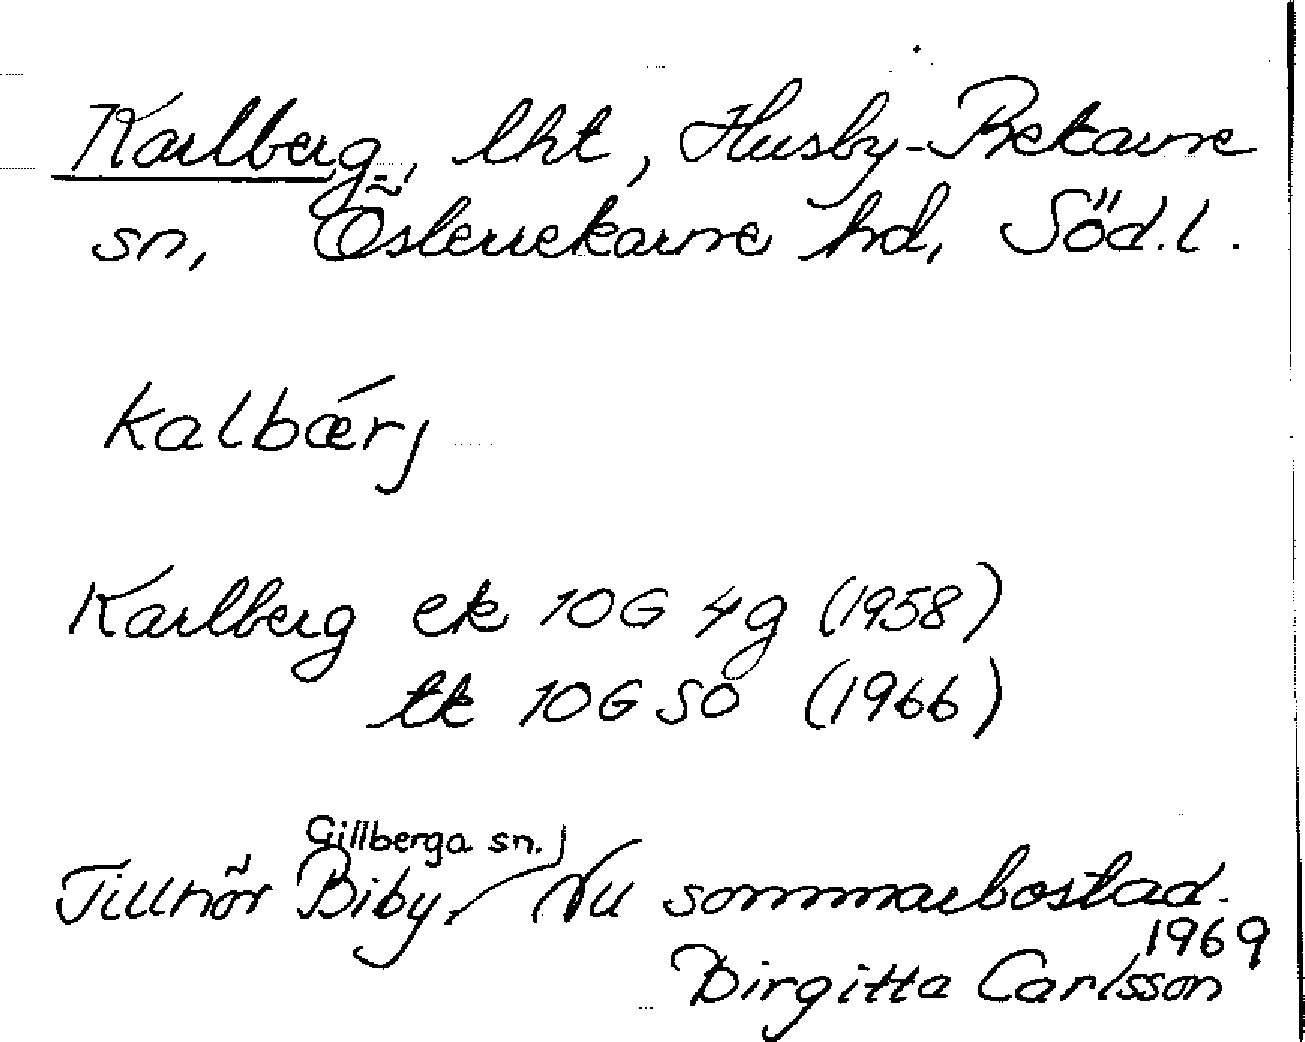 Karlberg, lht, Husby-Rekarne
sn, Österrekarne hd, Söd.l.
kalbǽrj
Karlberg ek 10G 4g (1958)
tk 10G SO (1966)
Gillberga sn.
Tillhör Biby. Nu sommarbostad.
1969
Birgitta Carlsson